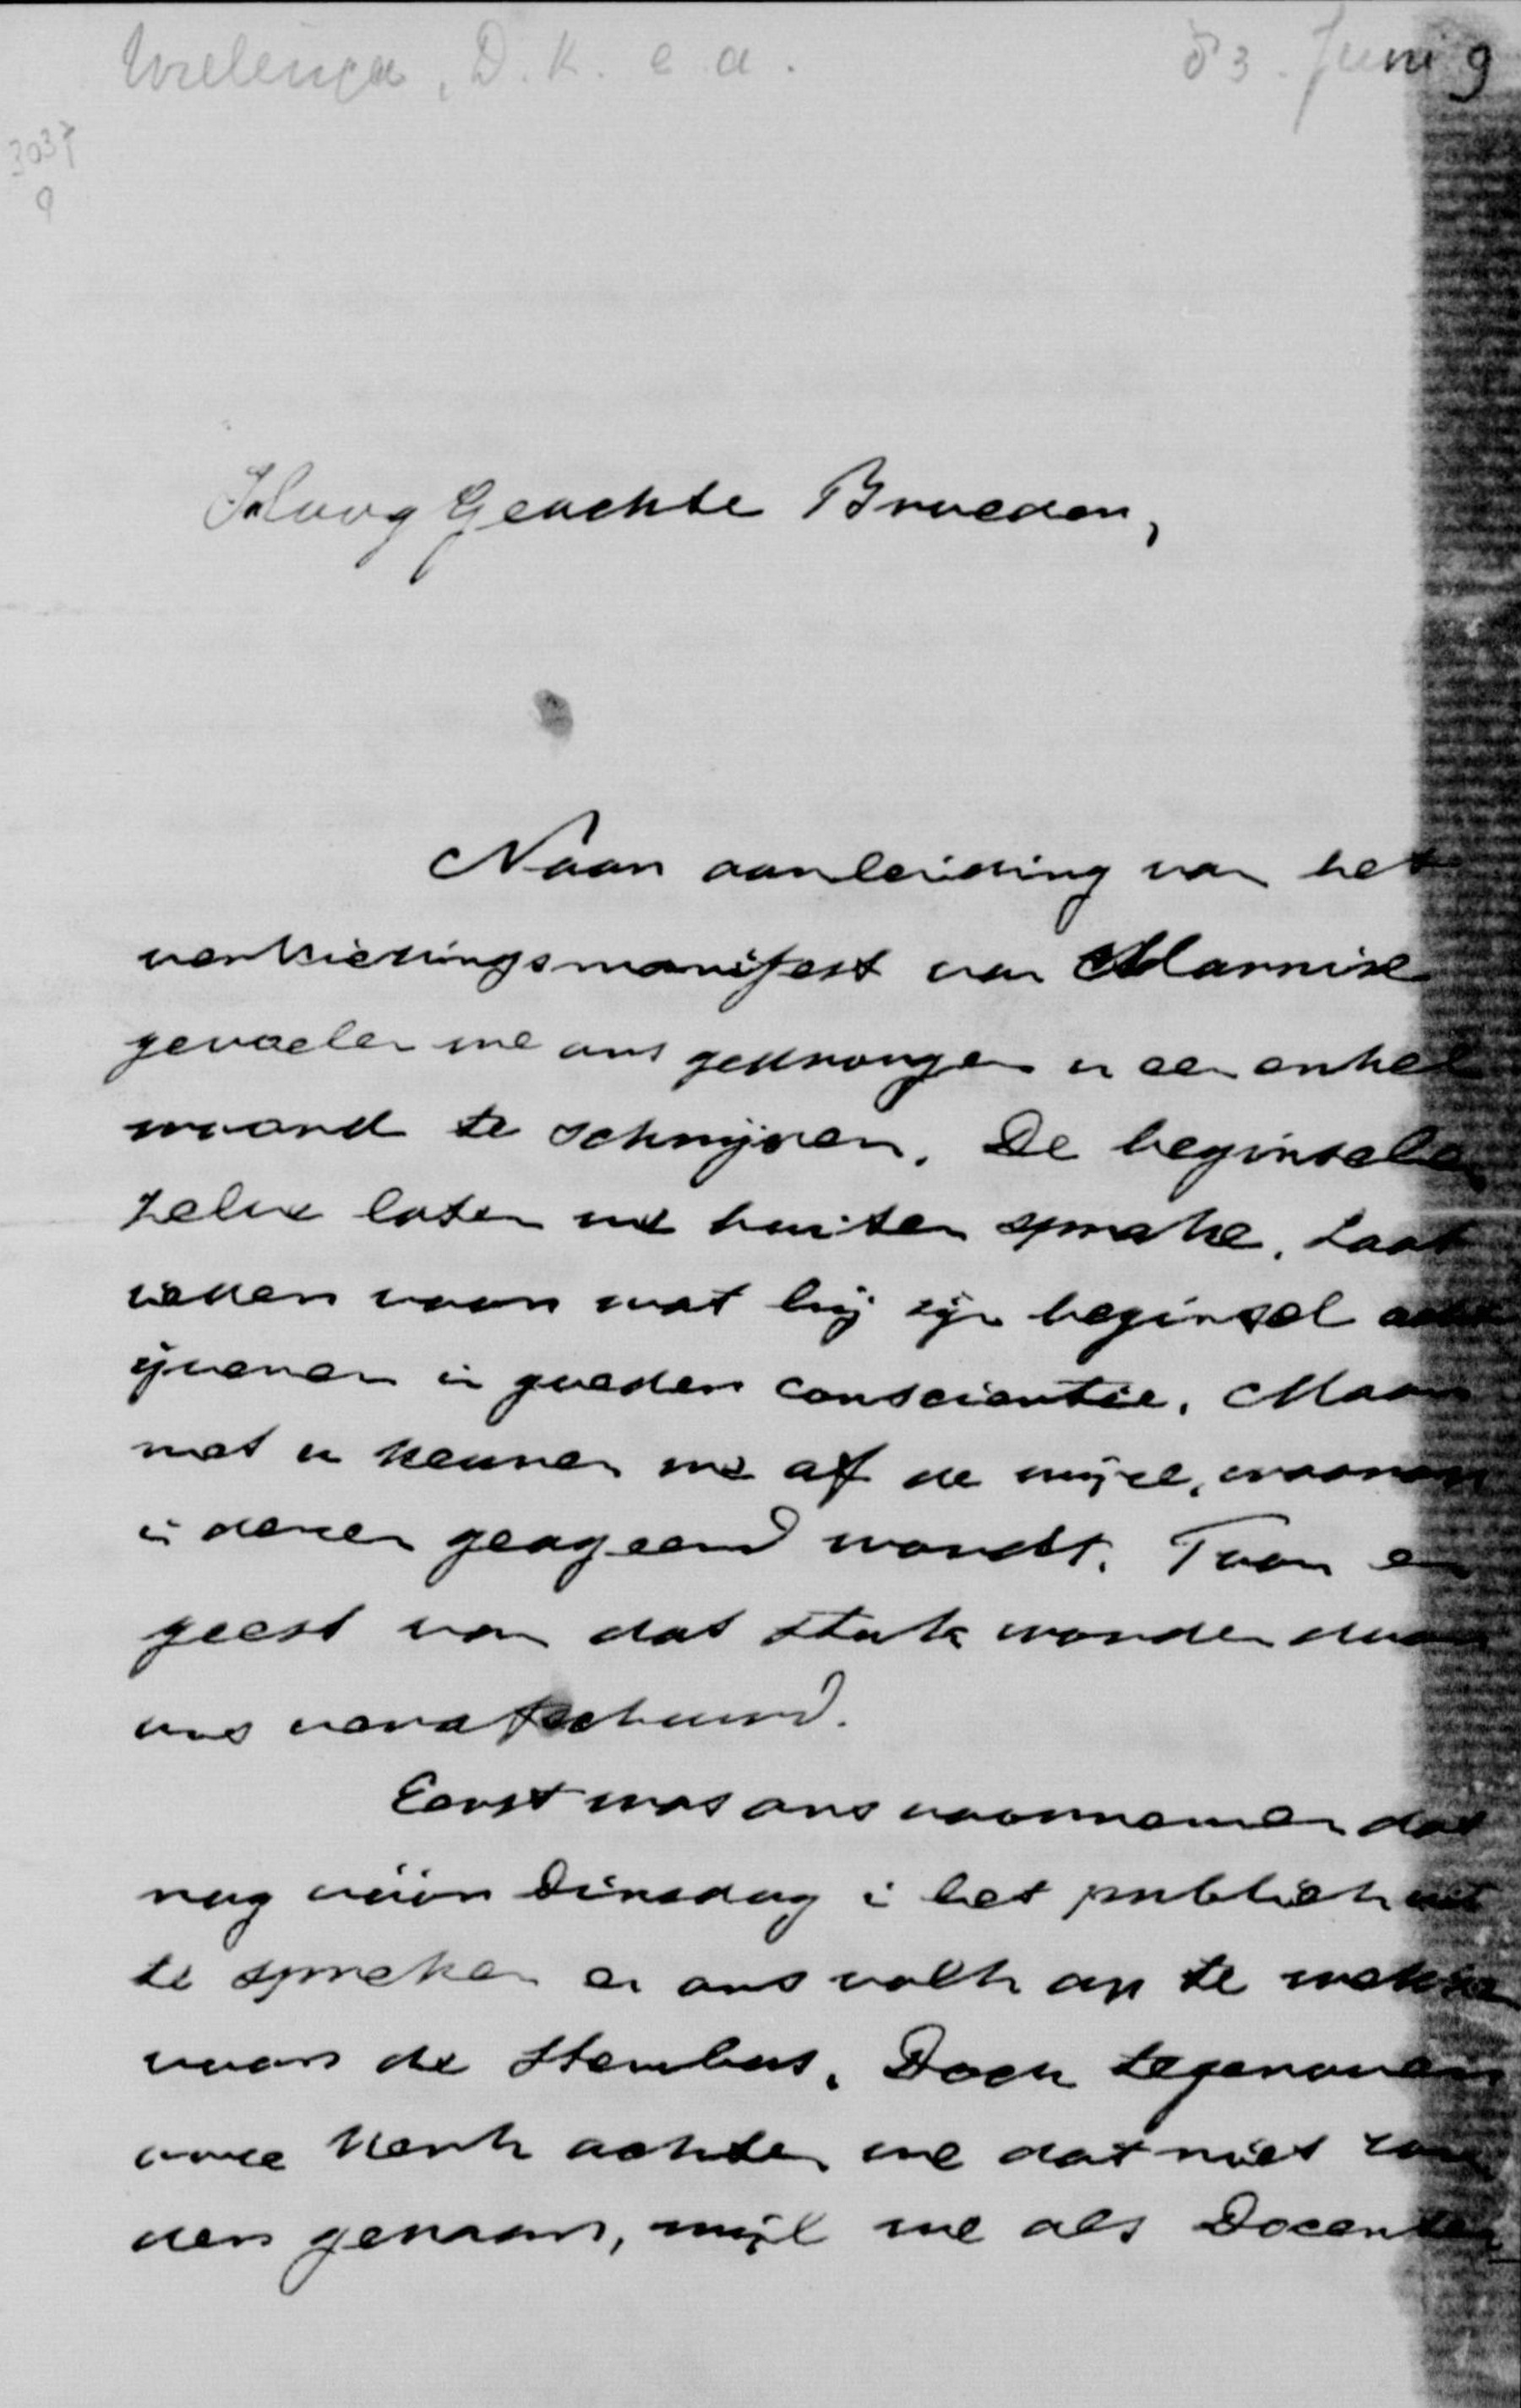 Wielenga, D.K. e.a.
83. Juni 9
3037
9
Hoog Geachte Broeder,
Naar aanleiding van het
verkiezingsmanifest van Marnix
gevoelen we ons gedrongen u een enkel
woord te schrijven. De beginselen
zelve laten we buiten sprake. Laat
ieder voor wat hij zijn beginsel acht
ijveren in goeder conscientie. Maar
met u keuren we af de wijze, waarop
in dezen geageerd wordt. Toon en
geest van dat stuk worden door
ons verafschuwd.
Eerst was ons voornemen dat
nog vóór Dinsdag in het publiek uit
te spreken en ons volk op te wekken
voor de stembus. Doch tegenover
onze Kerk achten we dat niet zon
der gevaar, wijl we als Docenten